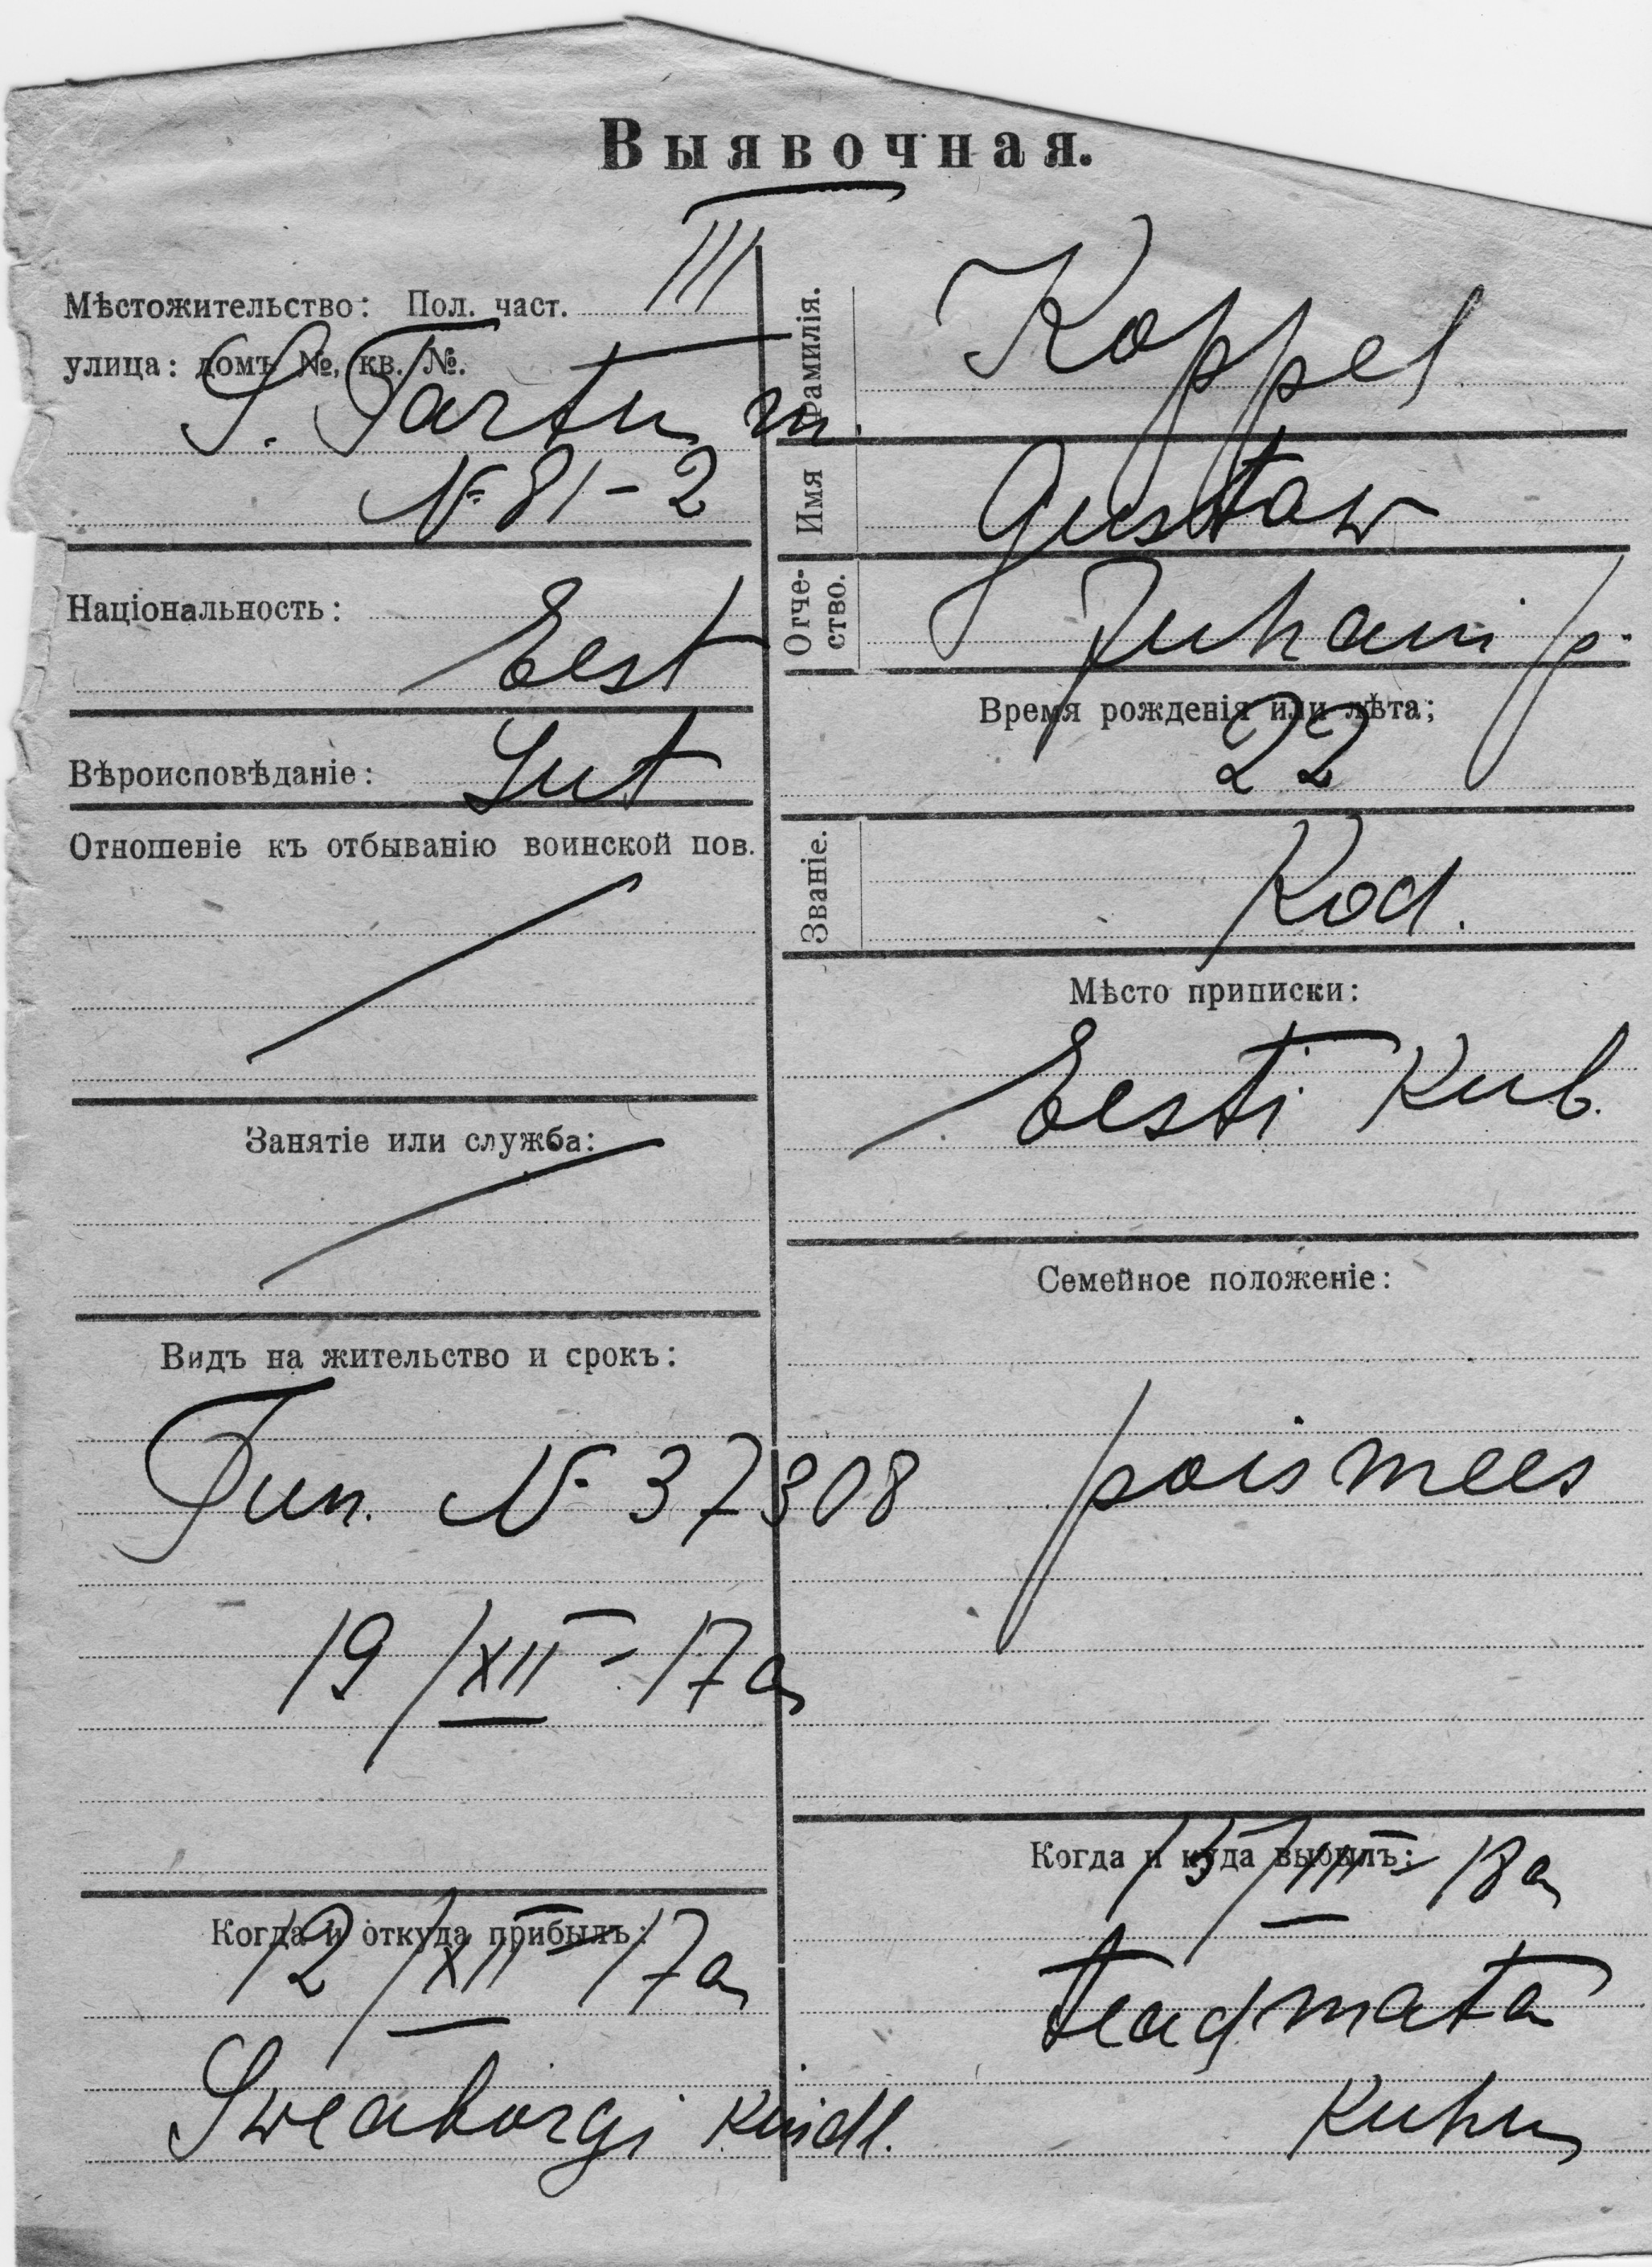 Выявочная.
Мѣстожительство: Пол. част. III
улица: домъ №, кв. №.
S. Tartu m.
№ 81-2
Національность:
Eest
Вѣроисповѣданіе: Lut
Отношеніе къ отбыванію воинской пов.
Занятіе или служба:
Видъ на жительство и срокъ:
Tun. № 37308
19/XII-17a
Когда и откуда прибылъ:
12/XII-17a
Sweaborgi Kindl.
Фамилія. Koppel
Имя Gustaw
Отче-
ство. Juhani p.
Время рожденія или лѣта;
22
Званіе. Kod.
Мѣсто приписки:
Eesti Kub.
Семейное положеніе:
poismees
Когда и куда выбылъ:
18a
teadmata
Kuhu